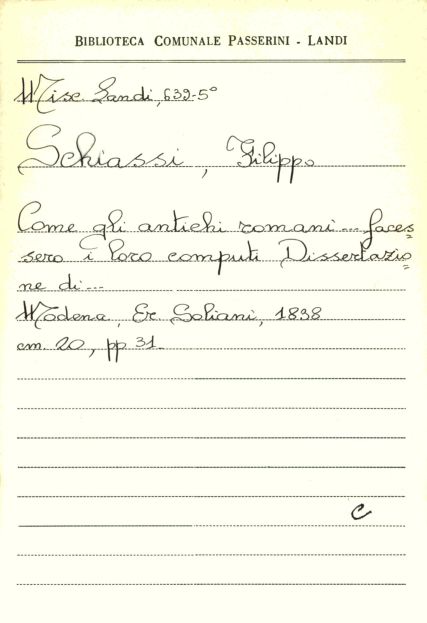 BIBLIOTECA COMUNALE PASSERINI - LANDI
Misc. Landi, 639-5°
Schiassi, Filippo
Come gli antichi romani... faces=
sero i loro computi Dissertazio=
ne di...
Modena, Er. Soliani, 1838
cm. 20, pp 31.
C